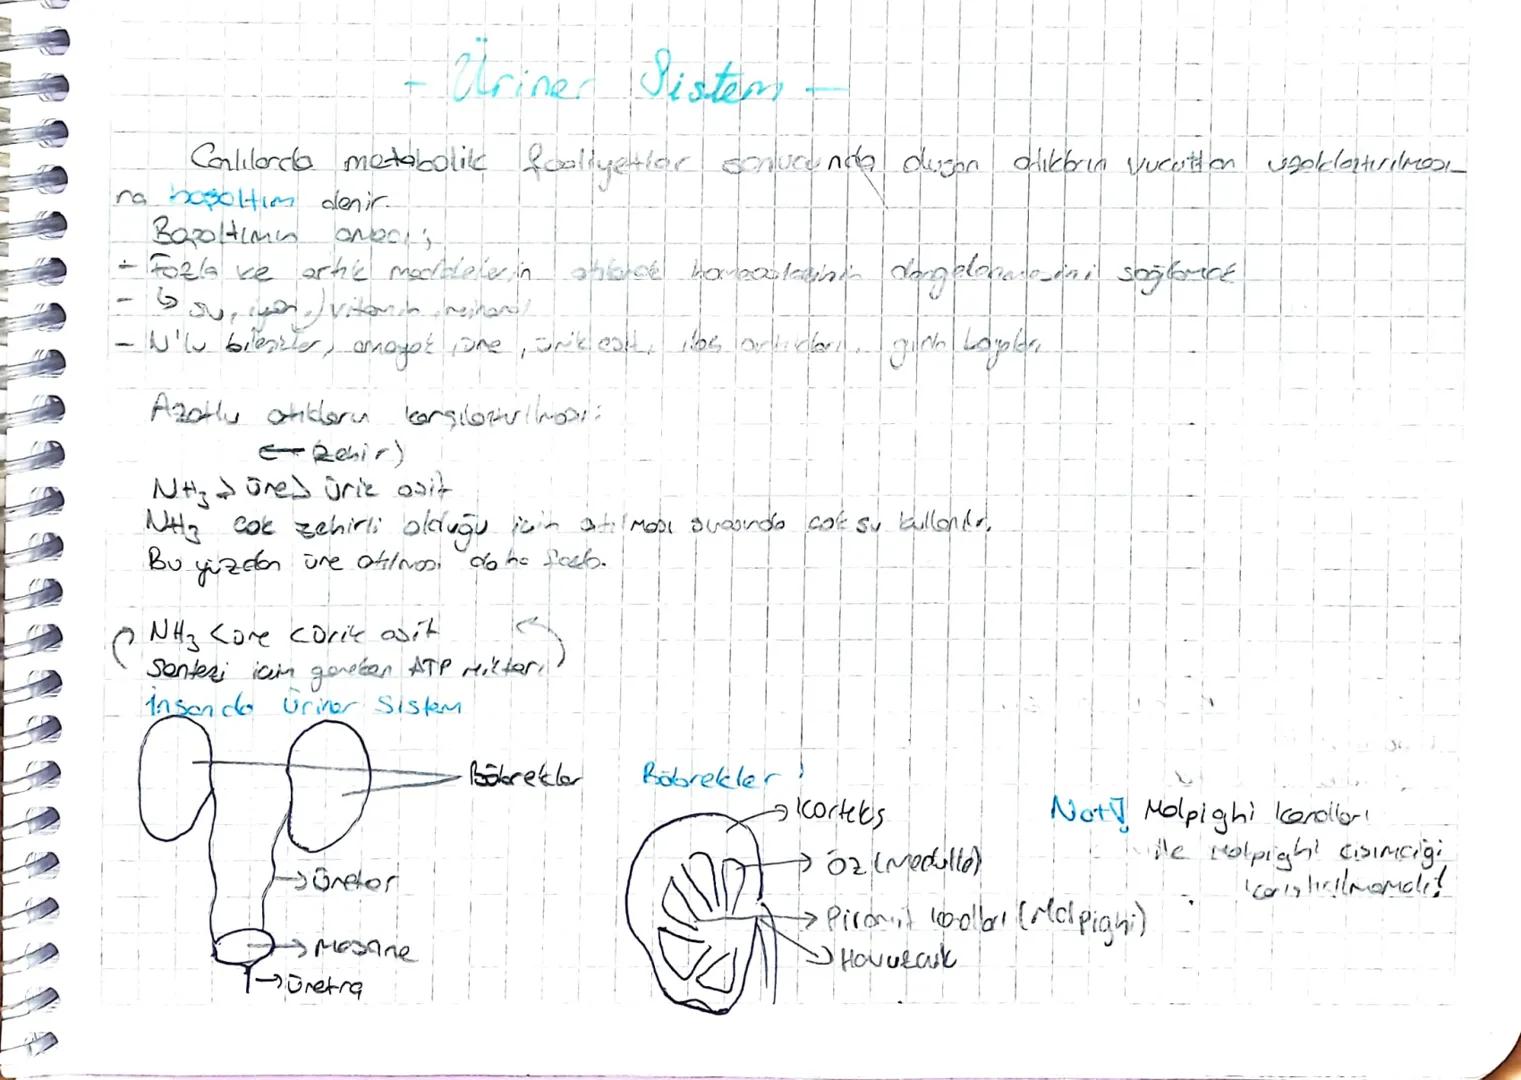 - Üriner Sistem -
Canlılarda metabolik faaliyetler sonucunda oluşan atıkların vücuttan uzaklaştırılması
na boşaltım denir.
Boşaltımın amacı;
- Fazla ve artık maddelerin atılarak homeostazinin dengelenmesini sağlamak
- ↳ su, iyon, vitamin, mineral
- N'lu bileşikler, amonyak, üre, ürik asit, ilaç artıkları,
Azotlu atıkların karşılaştırılması:
← (zehir)
NH3 > üre > ürik asit
NH3 çok zehirli olduğu için atılması sırasında çok su kullanılır.
Bu yüzden üre atılması daha fazla.
NH3 < üre < ürik asit
Sentezi için gereken ATP miktarı
İnsanda Üriner Sistem
Böbrekler
→ Üreter
→ Mesane
→ Üretra
Böbrekler:
→ Korteks
→ Öz (Medulla)
→ Piramit kanalları (Malpighi)
→ Havuzcuk
Not! Malpighi kanalları
ile Malpighi cisimciği
karıştırılmamalı!